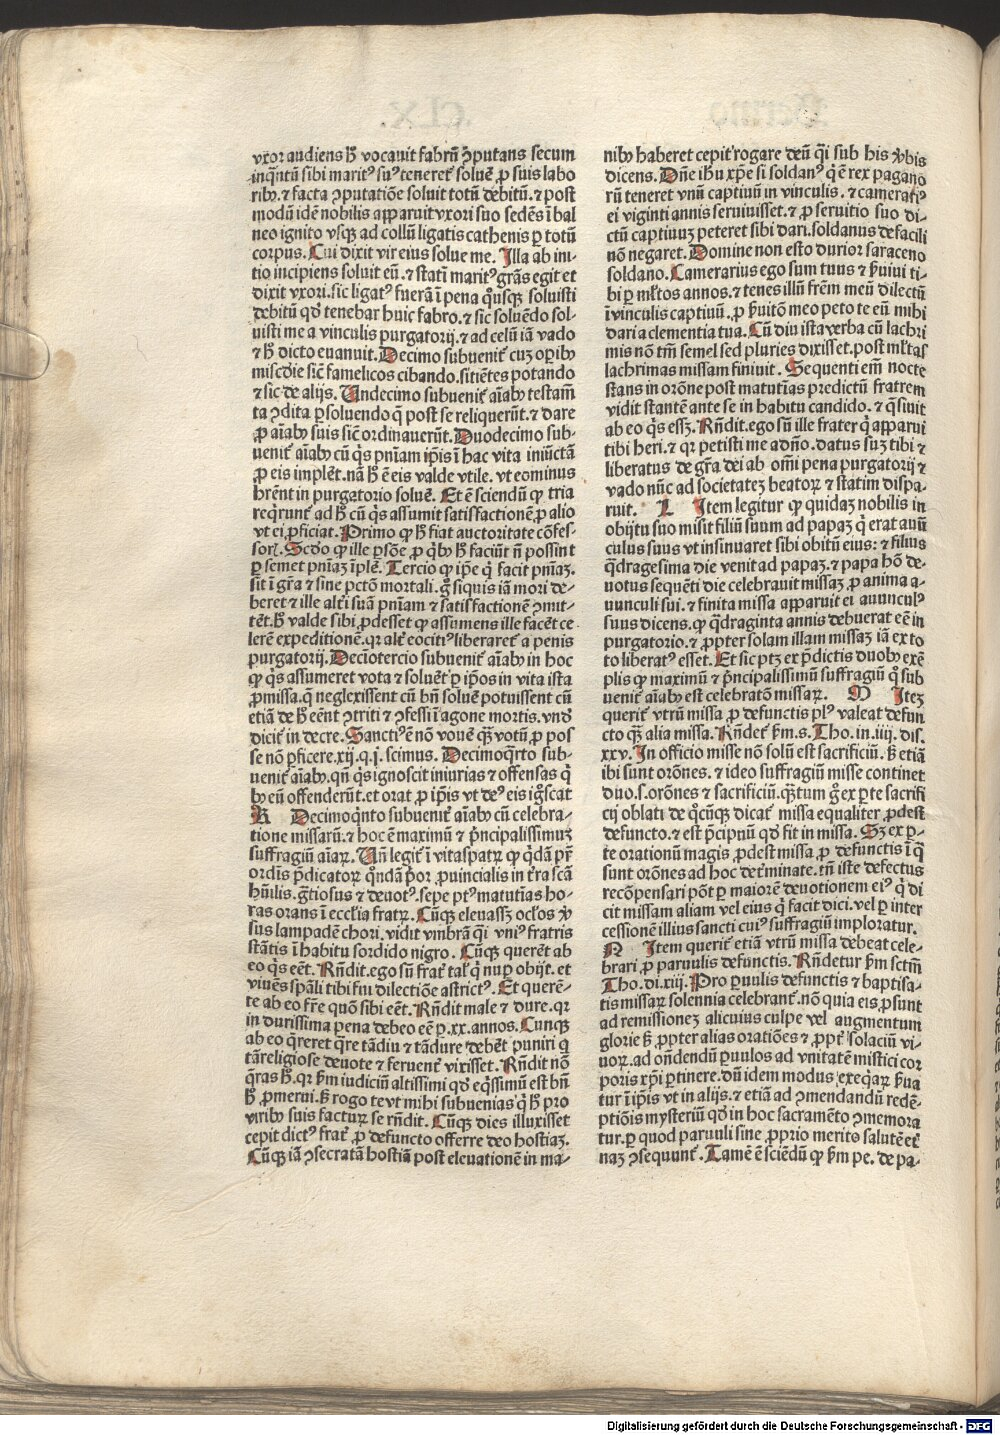 vxor audiens hͦ vocauit fabrū ↄputans secum
inq̄ntū sibi marit⁹ su⁹ teneret᷑ soluē ꝓ suis labo
rib⁹. ⁊ facta ↄputatiōe soluit totū debitū. ⁊ post
modū idē nobilis apparuit vxori suo sedēs ī bal
neo ignito vsqꝫ ad collū ligatis cathenis ꝑ totū
corpus. Cui dixit vir eius solue me. Illa ab ini-
tio incipiens soluit eū. ⁊ statī marit⁹ grās egit et
dixit vxori. sic ligat⁹ fuerā ī pena q̊usqꝫ soluisti
debitū qd̄ tenebar huic fabro. ⁊ sic soluēdo sol-
uisti me a vinculis purgatorij. ⁊ ad celū iā vado
⁊ hͦ dicto euanuit. Decimo subuenit᷑ cuꝫ oꝑib⁹
miscd̄ie sic̄ famelicos cibando. sitiētes potando
⁊ sic de alijs. Undecimo subuenit᷑ aīab⁹ testam̄
ta ↄdita ꝑsoluendo q̄ post se reliquerūt. ⁊ dare
ꝓ aīab⁹ suis sic̄ ordinauerūt. Duodecimo sub-
uenit᷑ aīab⁹ cū q̇s pn̄iam ip̄is ī hac vita iniūctā
ꝓ eis implet᷑. nā hͦ ē eis valde vtile. vt eominus
hr̄ent in purgatorio soluē. Et ē sciendū ꝙ tria
req̇runt᷑ ad hͦ cū q̇s assumit satisfactionē ꝓ alio
vt ei ꝓficiat. Primo ꝙ hͦ fiat auctoritate cōfes-
sorꝭ. Scd̄o ꝙ ille ꝑsōe ꝓ q̇b⁹ hͦ faciūt n̄ possint
ꝑ semet pn̄iaꝫ īplē. Tercio ꝙ ip̄e q̇ facit pn̄iaꝫ.
sit ī gr̄a ⁊ sine pctō mortali. gͦ siquis iā mori de-
beret ⁊ ille alt᷑i suā pn̄iam ⁊ satisfactionē ↄmit-
tēt. hͦ valde sibi ꝓdesset ꝙ assumens ille facēt ce-
lerē expeditionē. qr alit᷑ eocit⁹ liberaret᷑ a penis
purgatorij. Deciotercio subuenit᷑ aīab⁹ in hoc
ꝙ q̇s assumeret vota ⁊ soluēt ꝑ ip̄os in vita ista
ꝓmissa. q̄ neglexissent cū bn̄ soluē potuissent cū
etiā de hͦ eēnt ↄtriti ⁊ ↄfessi ī agone mortis. vnd̄
dicit᷑ in decre. Sancti⁹ ē nō vouē qꝫ votū ꝓ pos
se nō ꝑficere. xij. q. j. scimus. Decimoq̇rto sub-
uenit᷑ aīab⁹. qn̄ q̇s ignoscit iniurias ⁊ offensas q̇
b⁹ eū offenderūt. et orat ꝓ ip̄is vt de⁹ eis igͦscat
K Decimoq̇nto subuenit᷑ aīab⁹ cū celebra-
tione missarū. ⁊ hoc ē maximū ⁊ pͥncipalissimuꝫ
suffragiū aīaꝝ. Un̄ legit᷑ ī vitaspatꝝ ꝙ q̇dā pr̄
ordīs p̄dicatoꝝ q̊ndā p̄or ꝓuincialis in tr̄a scā
hu᷑ilis. gͣtiosus ⁊ deuot⁹. sepe pt⁹ matutīas ho-
ras orans ī eccl̄ia fratꝝ. Cūqꝫ eleuassꝫ ocl̄os v᷑
sus lampadē chori. vidit vmbrā q̄i vni⁹ fratris
stātis ī habitu sordido nigro. Cūqꝫ querēt ab
eo q̇s eēt. Rn̄dit. ego sū frat᷑ talꝭ q̇ nuꝑ obijt. et
viuēs spāli tibi fui dilectiōe astrict⁹. Et querē-
te ab eo fr̄e quō sibi eēt. Rn̄dit male ⁊ dure. qr
in durissima pena debeo eē ꝑ. xx. annos. Cunqꝫ
ab eo q̄reret q̄re tādiu ⁊ tādure debēt puniri q̇
tāreligiose deuote ⁊ feruent᷑ vixisset. Rn̄dit nō
q̄ras hͦ. qr ẜm iudiciū altissimi qd̄ eq̇ssimū est bn̄
hͦ ꝓmerui. ẜ rogo te vt mihi subuenias q̇ hͦ pro
virib⁹ suis facturꝫ se rn̄dit. Cūqꝫ dies illuxisset
cepit dict⁹ frat᷑ ꝓ defuncto offerre deo hostiaꝫ.
Cūqꝫ iā ↄsecratā hostiā post eleuationē in ma-
nib⁹ haberet cepit rogare deū q̄i sub his v᷑bis
dicens. Dn̄e ih̄u xp̄e si soldan⁹ q̇ ē rex pagano
rū teneret vnū captiuū in vinculis. ⁊ camerari⁹
ei viginti annis seruiuisset. ⁊ ꝓ seruitio suo di-
ctū captiuuꝫ peteret sibi dari. soldanus de facili
nō negaret. Domine non esto durior saraceno
soldano. Camerarius ego sum tuus ⁊ ẜuiui ti-
bi ꝑ ml̄tos annos. ⁊ tenes illū fr̄em meū dilectū
ī vinculis captiuū. ꝓ ẜuitō meo peto te eū mihi
dari a clementia tua. Cū diu ista verba cū lachri
mis nō tm̄ semel sed pluries dixisset. post ml̄tas
lachrimas missam finiuit. Sequenti em̄ nocte
stans in orōne post matutīas predictū fratrem
vidit stantē ante se in habitu candido. ⁊ q̄siuit
ab eo q̇s essꝫ. Rn̄dit. ego sū ille frater q̇ apparui
tibi heri. ⁊ qr petisti me adn̄o. datus suꝫ tibi ⁊
liberatus de gr̄a dei ab om̄i pena purgatorij ⁊
vado nūc ad societateꝫ beatoꝝ ⁊ statim dispa-
ruit. L Item legitur ꝙ quidaꝫ nobilis in
obijtu suo misit filiū suum ad papaꝫ q̇ erat auū
culus suus vt insinuaret sibi obitū eius: ⁊ filius
q̄dragesima die venit ad papaꝫ. ⁊ papa hō de-
uotus sequēti die celebrauit missaꝫ ꝓ anima a-
uunculi sui. ⁊ finita missa apparuit ei auuncul⁹
suus dicens. ꝙ q̄draginta annis debuerat eē in
purgatorio. ⁊ ꝓpter solam illam missaꝫ iā ex to
to liberat⁹ esset. Et sic ptꝫ ex p̄dictis duob⁹ exē
plis ꝙ maximū ⁊ pͥncipalissimū suffragiū q̊ sub
uenit᷑ aīab⁹ est celebratō missaꝝ. M Iteꝫ
querit᷑ vtrū missa ꝓ defunctis pl⁹ valeat defun
cto qꝫ alia missa. Rn̄det᷑ ẜm. s. Tho. in. iiij. dis.
xxv. In officio misse nō solū est sacrificiū. ẜ etiā
ibi sunt orōnes. ⁊ ideo suffragiū misse continet
duo. s. orōnes ⁊ sacrificiū. qꝫtum gͦ ex ꝑte sacrifi
cij oblati de q̇cūqꝫ dicat᷑ missa equaliter ꝓdest
defuncto. ⁊ est p̄cipuū qd̄ fit in missa. Sꝫ ex ꝑ-
te orationū magis ꝓdest missa ꝓ defunctis ī q̄
sunt orōnes ad hoc det᷑minate. tn̄ iste defectus
recōpensari pōt ꝑ maiorē deuotionem ei⁹ q̇ di
cit missam aliam vel eius q̇ facit dici. vel ꝑ inter
cessionē illius sancti cui⁹ suffragiū imploratur.
N Item querit᷑ etiā vtrū missa debeat cele-
brari ꝓ paruulis defunctis. Rn̄detur ẜm sctm̄
Tho. di. xiij. Pro ꝑuulis defunctis ⁊ baptisa-
tis missaꝝ solennia celebrant᷑. nō quia eis ꝓsunt
ad remissioneꝫ alicuius culpe vel augmentum
glorie ẜ ꝓpter alias oratiōes ⁊ ꝓpt᷑ solaciū vi-
uoꝝ. ad on̄dendū ꝑuulos ad vnitatē mistici cor
poris xp̄i ꝑtinere. dū idem modus exeq̇aꝝ ẜua
tur ī ip̄is vt in alijs. ⁊ etiā ad ↄmendandū redē-
ptiōis mysteriū qd̄ in hoc sacramēto ↄmemora
tur. ꝑ quod paruuli sine ꝓprio merito salutē et᷑
naꝫ ↄsequunt᷑. Tamē ē sciēdū ꝙ ẜm pe. de pa-
Digitalisierung gefördert durch die Deutsche Forschungsgemeinschaft - DFG